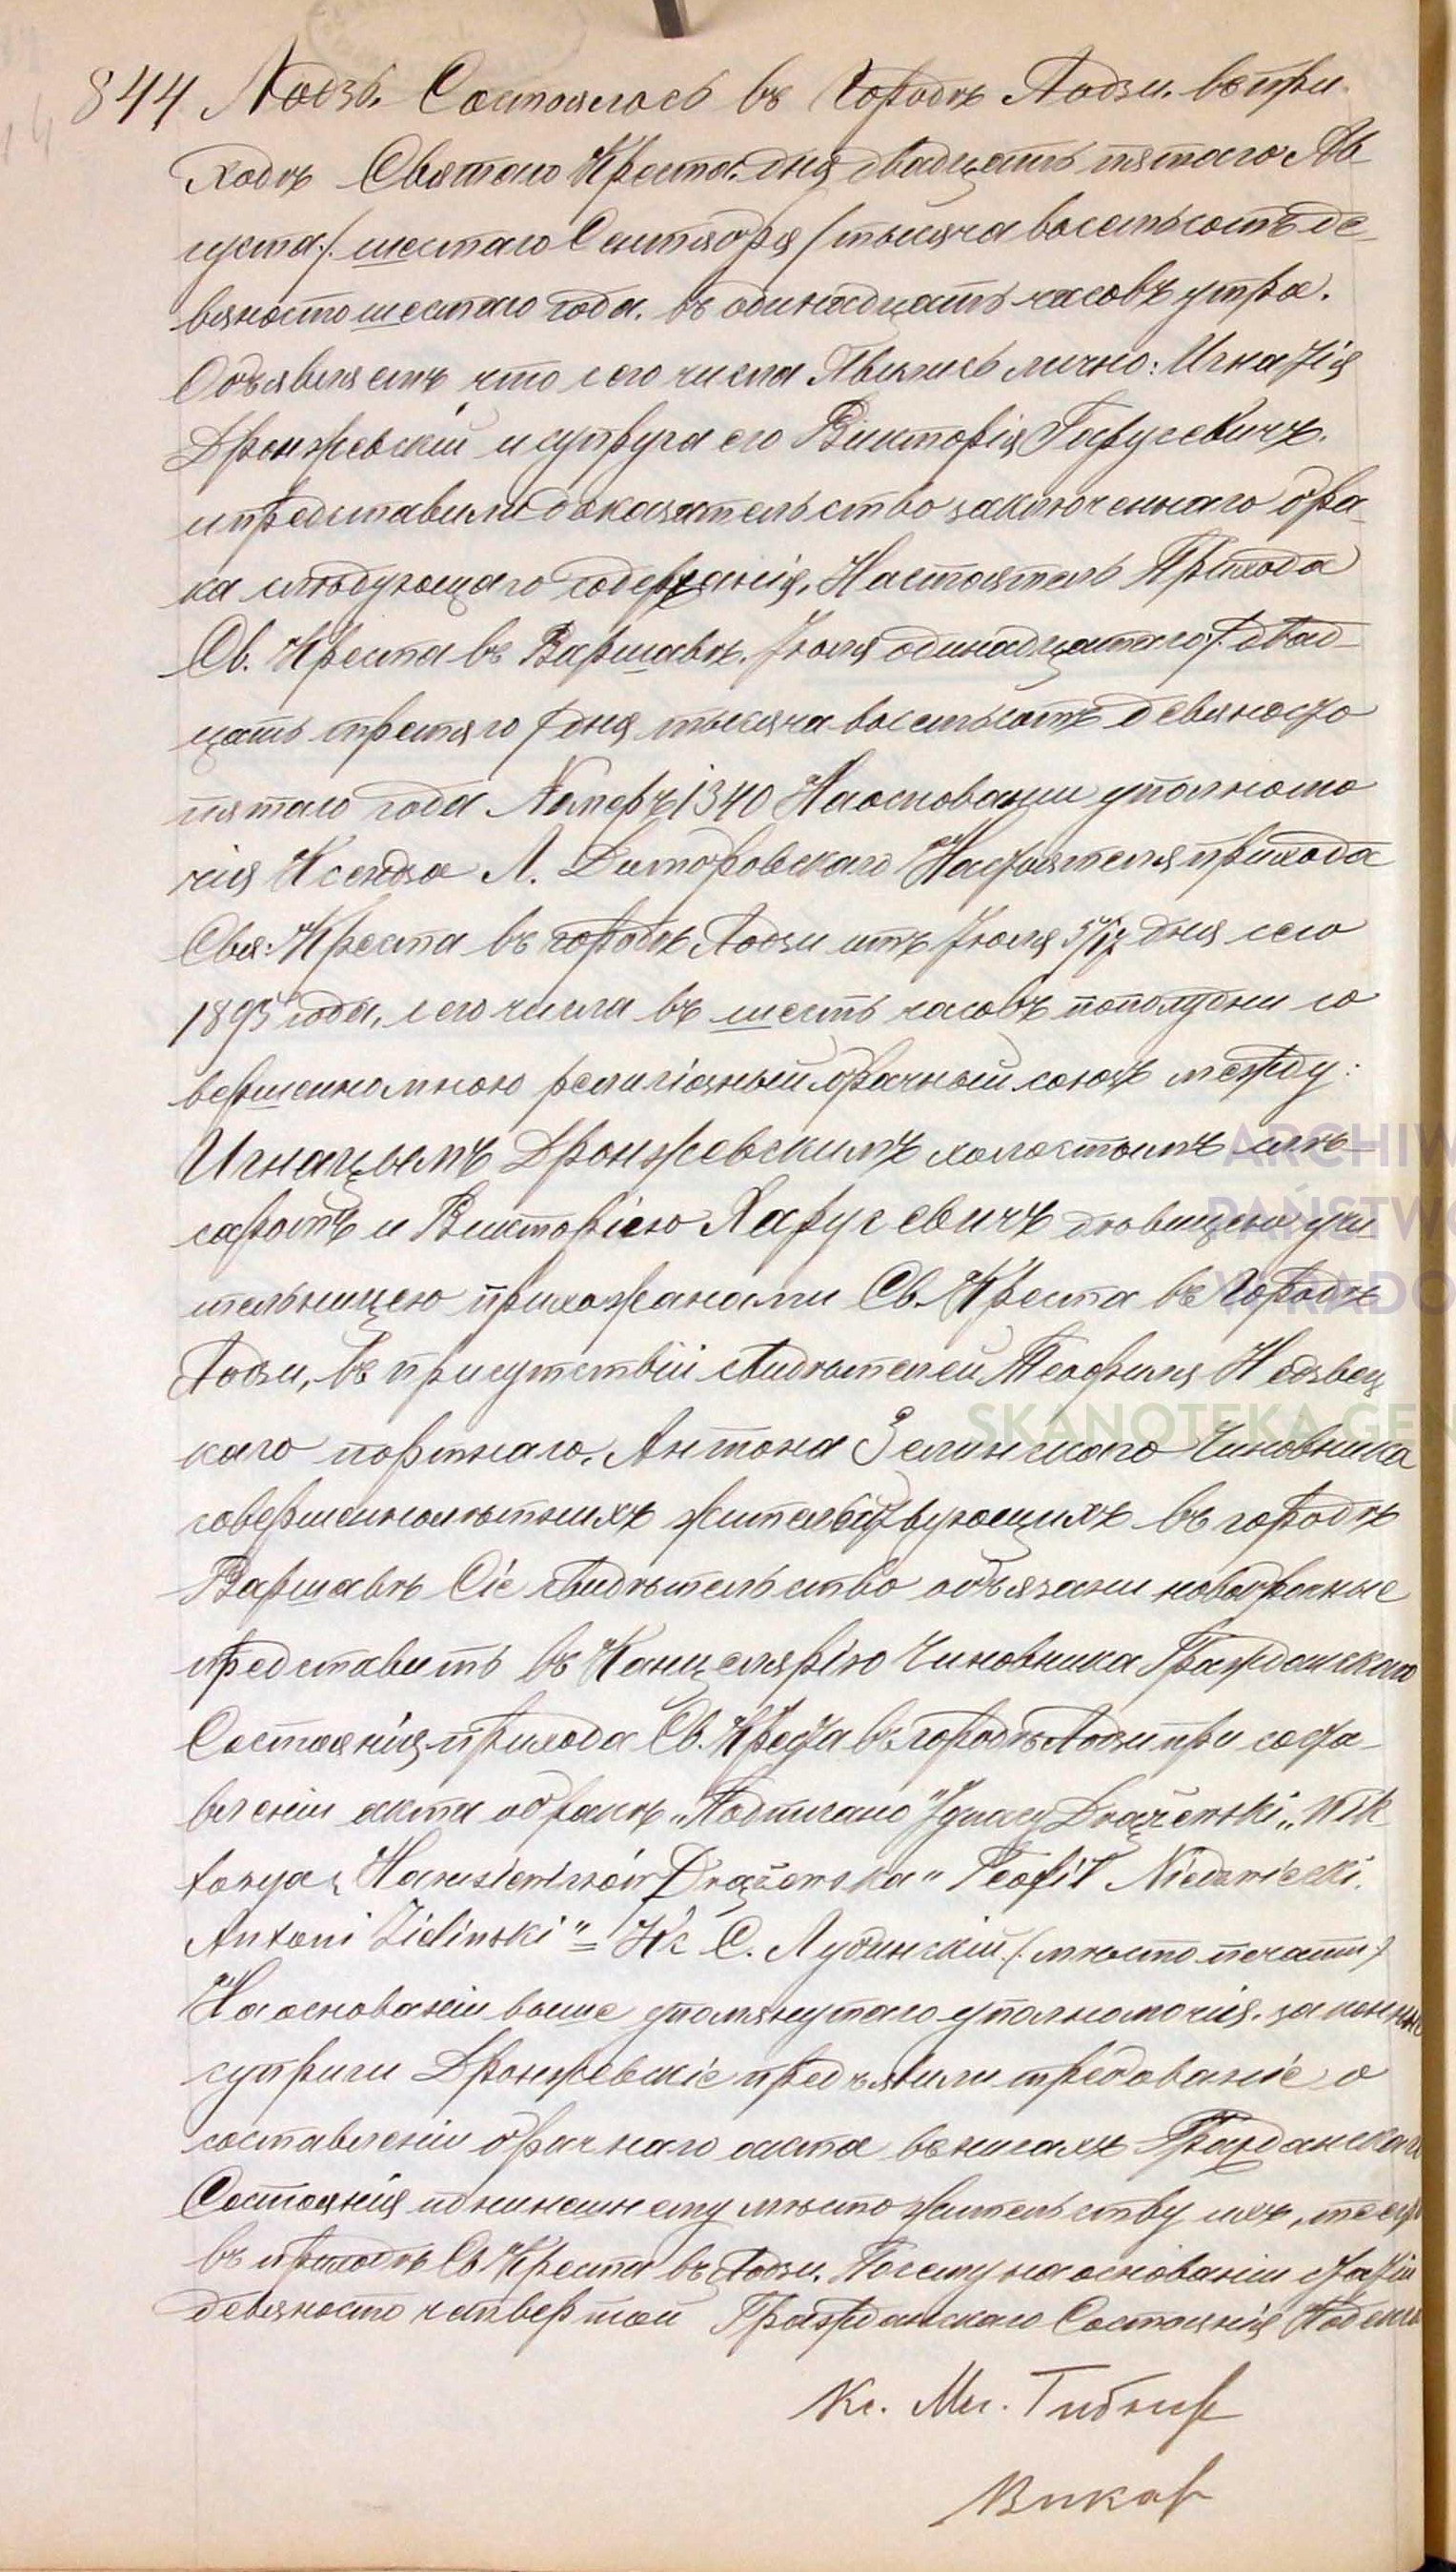 844 Лодзь. Состоялось въ Городѣ Лодзи. въ при-
ходѣ Святаго Креста. дня двадцать пятаго Ав-
густа /: шестаго Сентября / тысяча восемьсотъ де-
вяносто шестаго года. въ одинадцать часовъ утра.
Объявляемъ что сего числа Явились лично: Игнатiй
Дронжевскiй и супруга его Викторiя Гарусевичъ.
и представили доказательство заключеннаго бра-
ка слѣдующаго содержанiя, Настоятель Прихода
Св. Креста въ Варшавѣ. Iюля одинадцатаго /: двад-
цать третяго / дня тысяча восемьсотъ девяносто
пятаго года Номеръ 1340 На основанiи уполномо
чiя Ксендза Л. Домбровскаго Настоятеля прихода
Свя: Креста въ городѣ Лодзи отъ Iюля 5/17 дня сего
1895 года, сего числа въ шесть часовъ пополудни со
вершенно мною религiозный брачный союзъ между:
Игнацымъ Дронжевскимъ холостымъ слѣ-
саромъ и Викторiею Харусевичъ дѣвицею учи
тельницею прихожанами Св. Креста въ Городѣ
Лодзи, въ присутствiи свидѣтелей Теофиля Недзвец
каго портнаго, Антона Зелинскаго Чиновника
совершеннолѣтнихъ жительствующихъ въ городѣ
Варшавѣ Сiе свидѣтельство обязаны новобрачные
представить въ Канцелярiю Чиновника Гражданскаго
Состоянiя прихода Св. Креста въ городѣ Лодзи при соста-
вленiи акта о бракѣ „Подписано" Ignacy Drążewski „Wik
torya z Harusiewiczów Drążewska" Teofil Niedzwiecki.
Antoni Zieliński" = Кс С. Лубинскiй /: мѣсто печати /
На основанiи выше упомянутаго уполномочiя. законные
супруги Дронжевскiе предъявили требованiе о
составленiи брачнаго акта въ книгахъ Гражданскаго
Состоянiя по нынешнему мѣсто жительству ихъ, то есть
въ приходѣ Св Креста въ Лодзи. Посему на основанiи статiи
девяносто четвертой Гражданскаго Состоянiя
Кс. Ми.
Викар